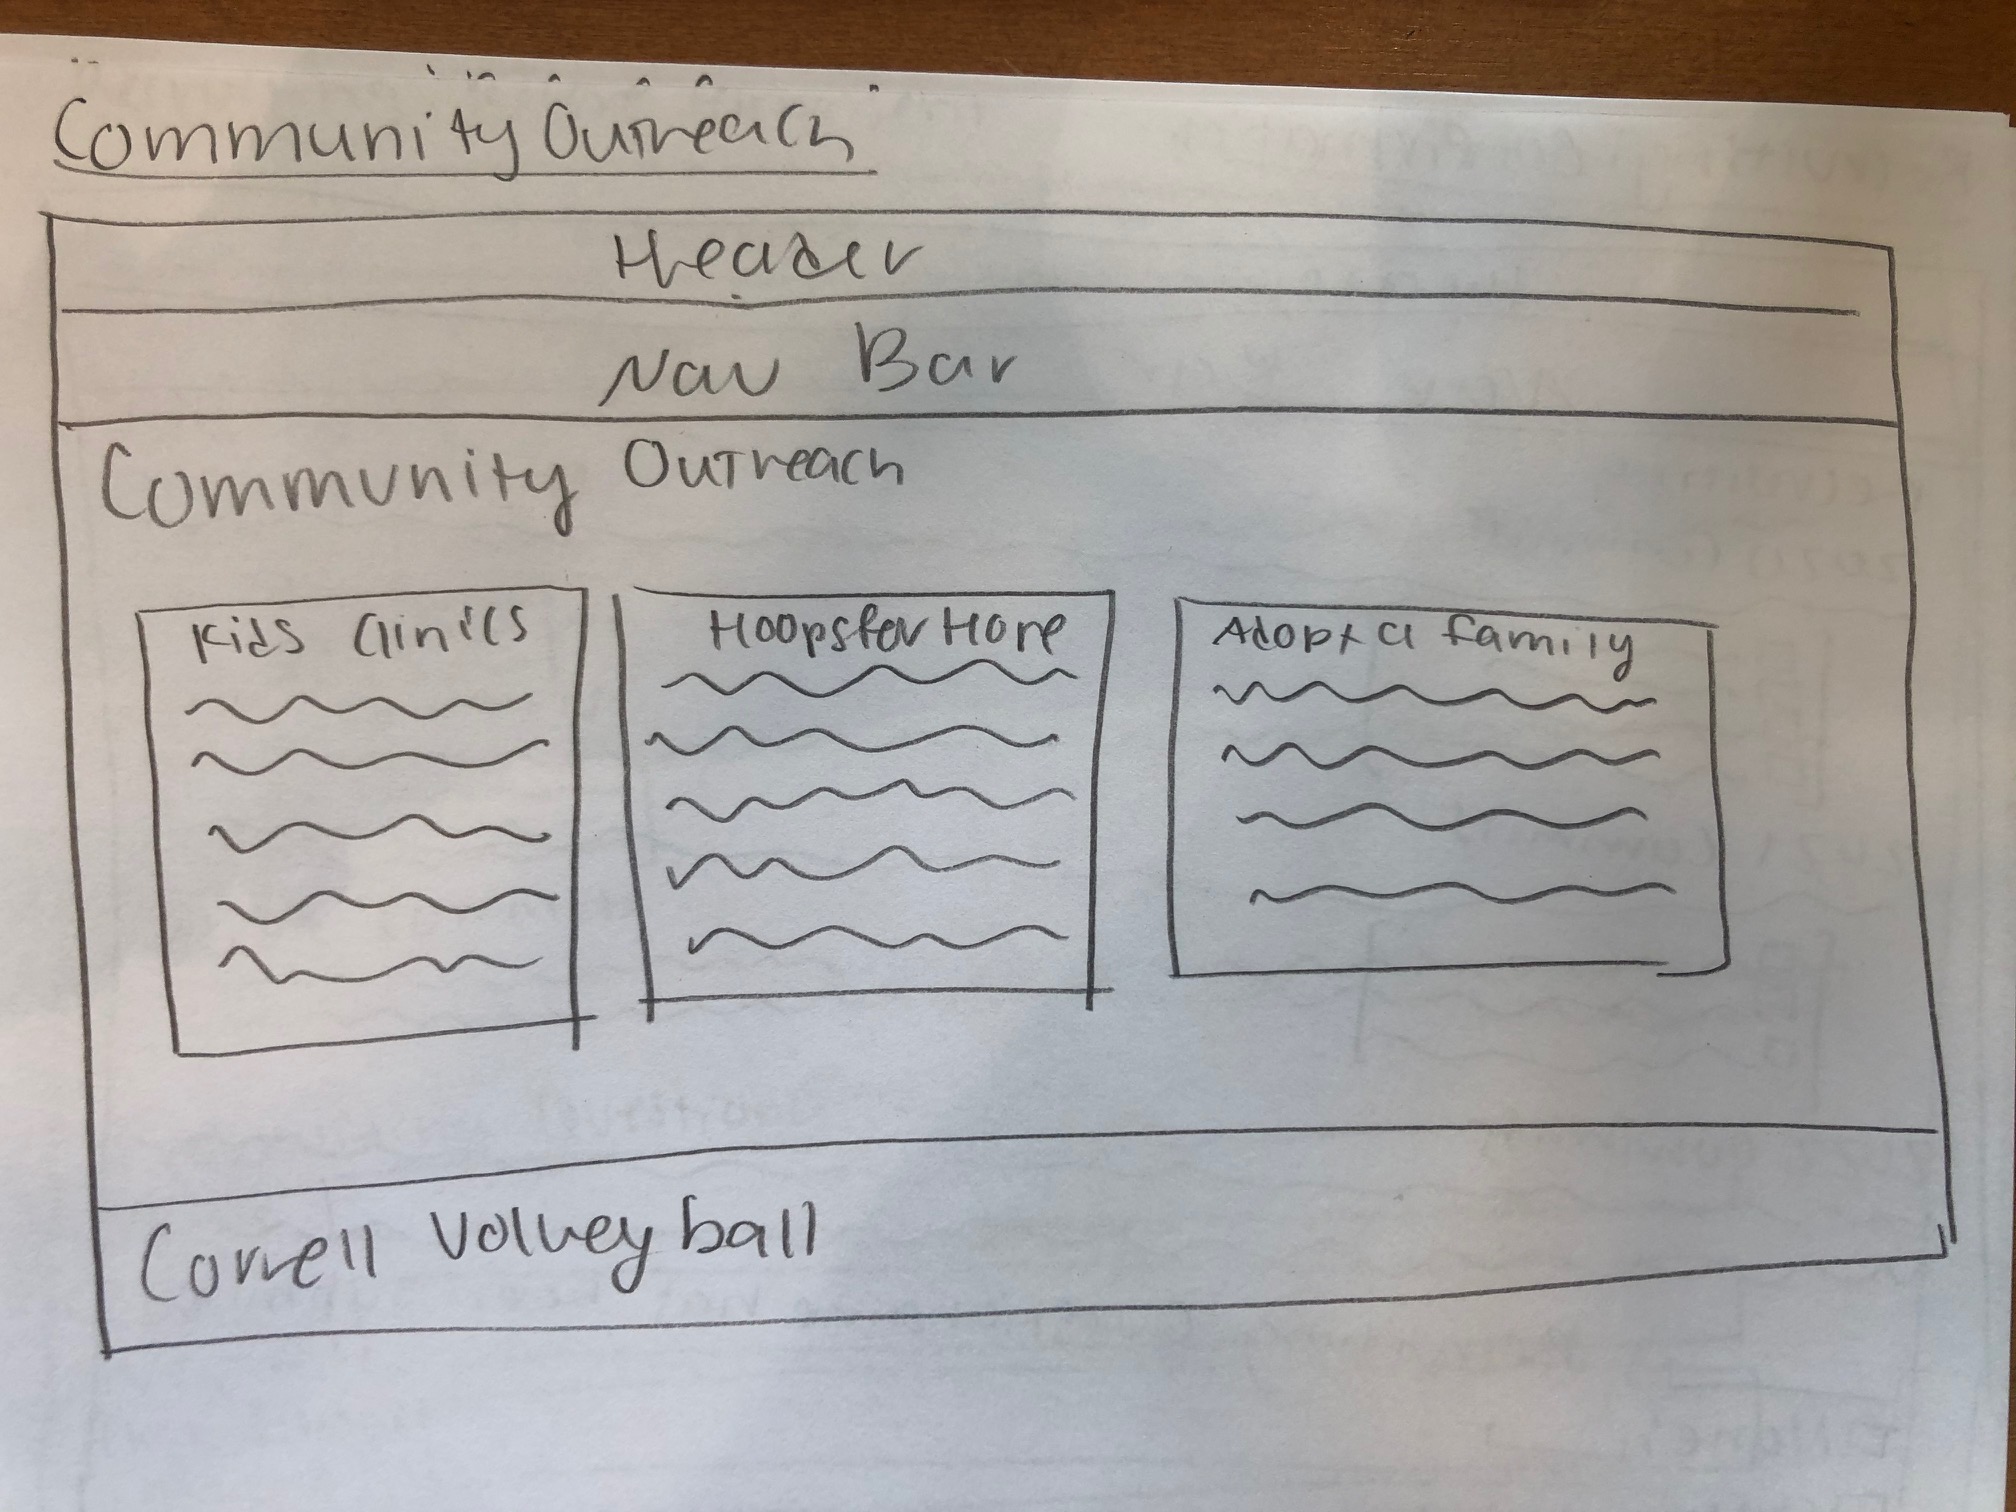 Community Outreach
Header
Nav Bar
Community Outreach
Kids Clinics
Hoops for Hope
Adopt a family
Cornell Volleyball